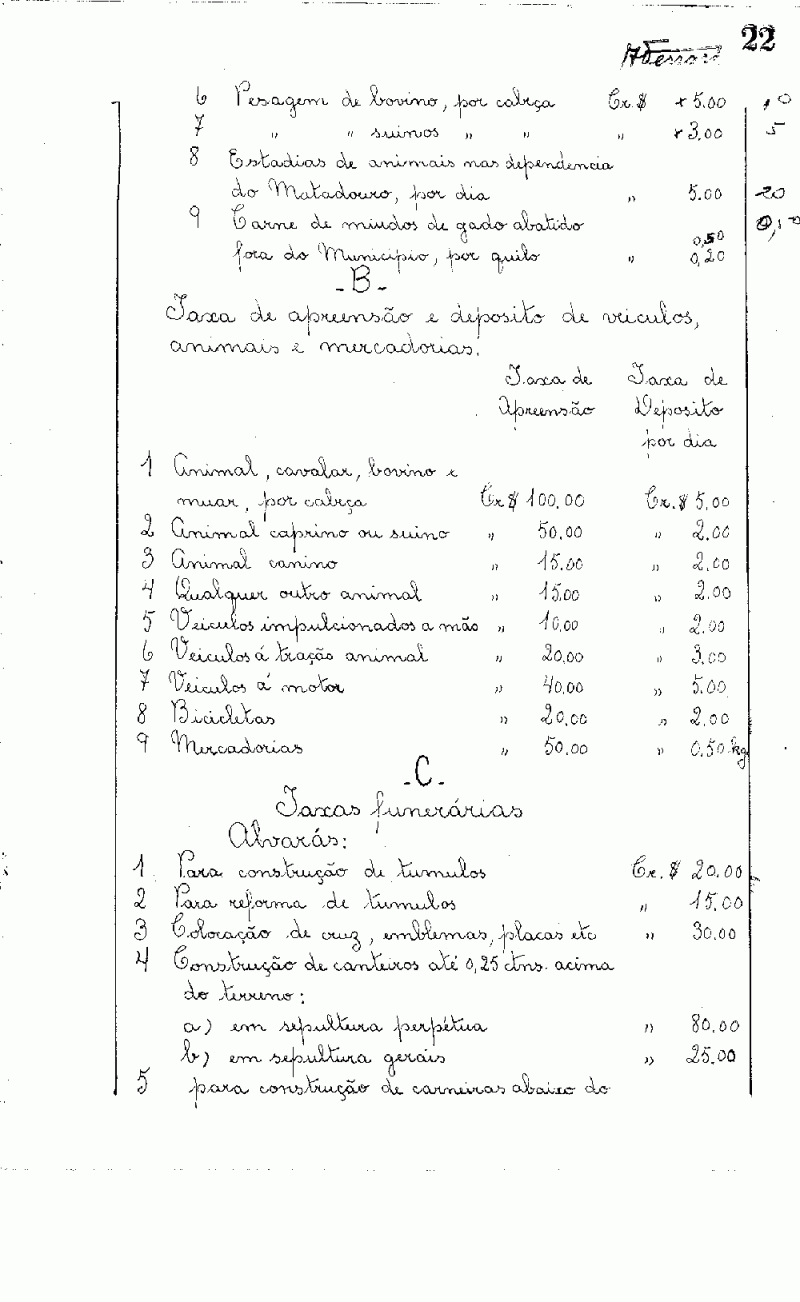 22
6 Pesagem de bovino, por cabeça Cr.$ x 5.00 10
7 " " suinos " " " x 3,00 5
8 Estadias de animais nas dependencia
do Matadouro, por dia " 5.00 20
9 Carne de miudos de gado abatido
0,50
fora do Municipio, por quilo " 0,20
- B -
Taxa de apreensão e deposito de veiculos,
animais e mercadorias.
Taxa de Taxa de
Apreensão Deposito
por dia
1 Animal, cavalar, bovino e
muar, por cabeça Cr$ 100,00 Cr.$ 5,00
2 Animal caprino ou suino " 50,00 " 2,00
3 Animal canino " 15.00 " 2,00
4 Qualquer outro animal " 15,00 " 2,00
5 Veiculos impulcionados a mão " 10,00 " 2,00
6 Veiculos á tração animal " 20,00 " 3,00
7 Veiculos á motor " 40,00 " 5,00
8 Bicicletas " 20,00 " 2,00
9 Mercadorias " 50.00 " 0,50 kg
- C -
Taxas funerárias
Alvarás:
1 Para construção de tumulos Cr. $ 20,00
2 Para reforma de tumulos " 15,00
3 Colocação de cruz, emblemas, placas etc " 30,00
4 Construção de canteiros até 0,25 ctns. acima
do terreno:
a) em sepultura perpétua " 80,00
b) em sepultura gerais " 25,00
5 para construção de carneiras abaixo do